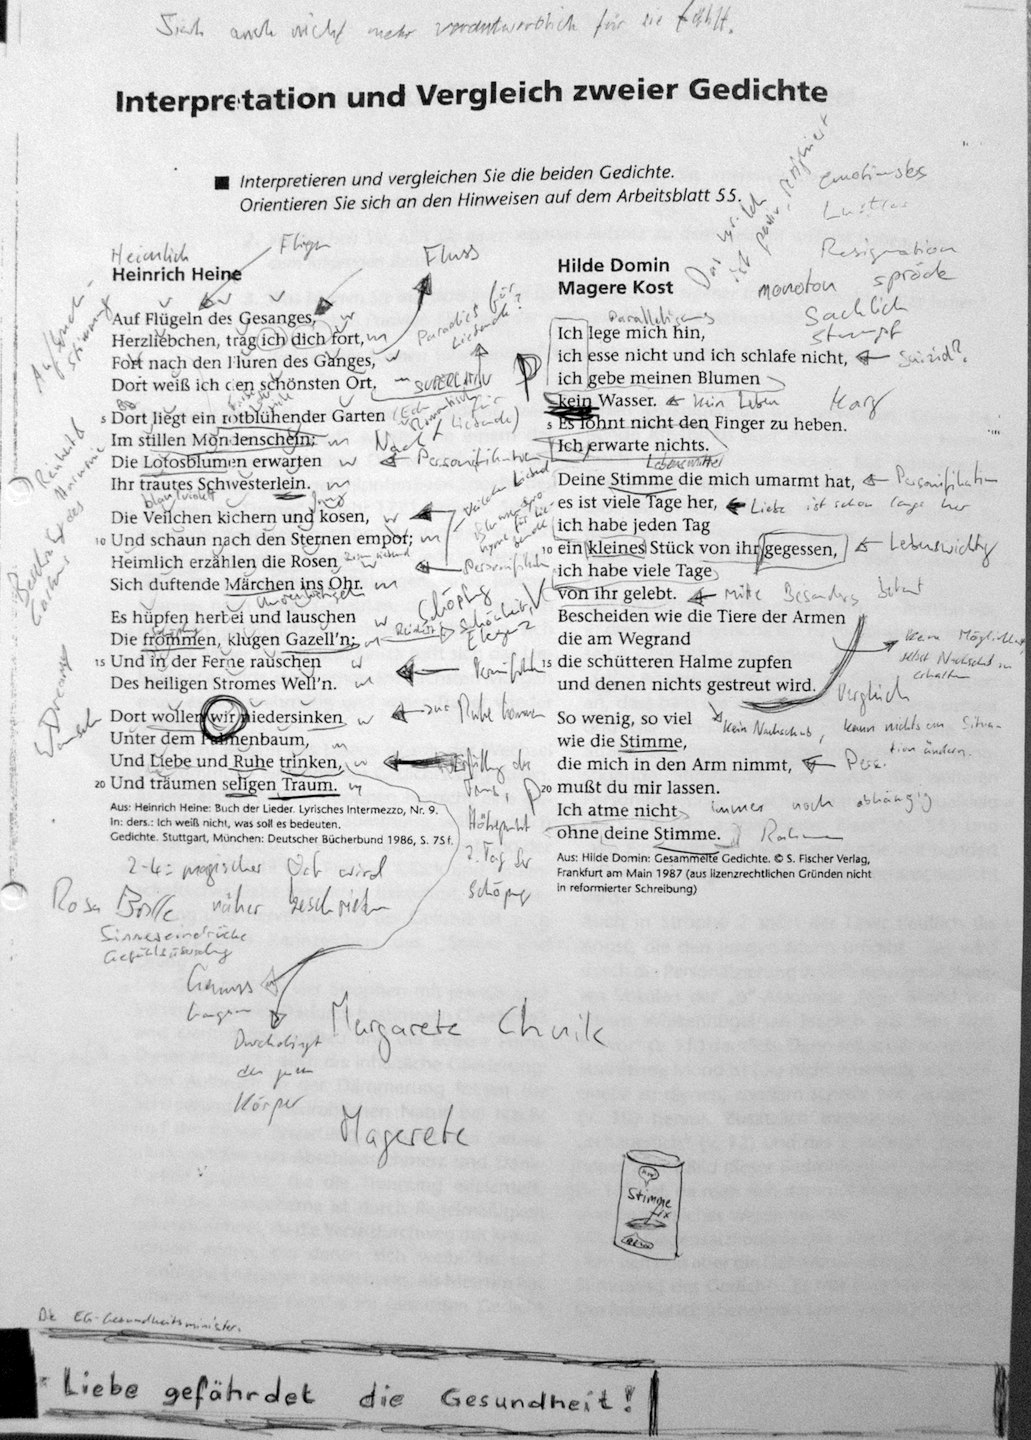 Sich auch nicht mehr verantwortlich für sie fühlt.
Interpretation und Vergleich zweier Gedichte
Interpretieren und vergleichen Sie die beiden Gedichte.
Orientieren Sie sich an den Hinweisen auf dem Arbeitsblatt 55.
emotionslos
Lustlos
Resignation
spröde
monoton
sachlich
stumpf
Das lyr. Ich
ist passiv, resigniert
Heimlich
Fliegen
Fluss
Heinrich Heine
Auf Flügeln des Gesanges,
Herzliebchen, trag ich dich fort,
Fort nach den Fluren des Ganges,
Dort weiß ich den schönsten Ort,
SUPERLATIV
Paradies für
Liebende?
5 Dort liegt ein rotblühender Garten
Im stillen Mondenschein;
Nacht
Die Lotosblumen erwarten
Personifikation
Ihr trautes Schwesterlein.
Die Veilchen kichern und kosen,
10 Und schaun nach den Sternen empor;
Heimlich erzählen die Rosen
Personifik
Sich duftende Märchen ins Ohr.
Es hüpfen herbei und lauschen
Schöpfung
Die frommen, klugen Gazell'n;
Schönheit
Eleganz
15 Und in der Ferne rauschen
Personifik
Des heiligen Stromes Well'n.
Dort wollen wir niedersinken
zur Ruhe kommen
Unter dem Palmenbaum,
Und Liebe und Ruhe trinken,
20 Und träumen seligen Traum.
Höhepunkt
7. Tag der
Schöpfung
Aus: Heinrich Heine: Buch der Lieder. Lyrisches Intermezzo, Nr. 9.
In: ders.: Ich weiß nicht, was soll es bedeuten.
Gedichte. Stuttgart, München: Deutscher Bücherbund 1986, S. 75f.
2-4: magischer Ort wird
näher beschrieben
Rosa Brille
Sinneseindrücke
Genuss
Durchdringt
den ganzen
Körper
Hilde Domin
Magere Kost
Parallelismus
Ich lege mich hin,
ich esse nicht und ich schlafe nicht,
Suizid?
ich gebe meinen Blumen
kein Wasser.
kein Leben
Harz
5 Es lohnt nicht den Finger zu heben.
Ich erwarte nichts.
Lebensmittel
Deine Stimme die mich umarmt hat,
Personifikation
es ist viele Tage her,
Liebe ist schon lange her
ich habe jeden Tag
10 ein kleines Stück von ihr gegessen,
Lebenswichtig
ich habe viele Tage
von ihr gelebt.
Bescheiden wie die Tiere der Armen
die am Wegrand
15 die schütteren Halme zupfen
und denen nichts gestreut wird.
keine Möglichkeit
selbst Nachschub zu
erhalten
Vergleich
kein Nachschub, kann nichts an Situa-
tion ändern.
So wenig, so viel
wie die Stimme,
die mich in den Arm nimmt,
Pers.
20 mußt du mir lassen.
Ich atme nicht
immer noch abhängig
ohne deine Stimme.
Rahmen
Aus: Hilde Domin: Gesammelte Gedichte. © S. Fischer Verlag,
Frankfurt am Main 1987 (aus lizenzrechtlichen Gründen nicht
in reformierter Schreibung)
Margarete
Magerete
Stimme
fix
Die EG-Gesundheitsminister.
Liebe gefährdet die Gesundheit!